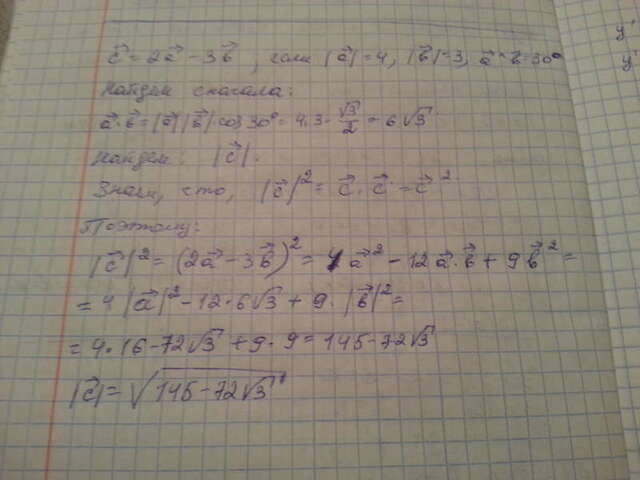 c⃗ = 2a⃗ - 3b⃗, если |a⃗| = 4, |b⃗| = 3, a⃗ ^ b⃗ = 30°
Найдем сначала:
a⃗ · b⃗ = |a⃗| |b⃗| · cos 30° = 4 · 3 · √3/2 = 6√3
Найдем: |c⃗|.
Знаем, что, |c⃗|² = c⃗ · c⃗ = c⃗ ²
Поэтому:
|c⃗|² = (2a⃗ - 3b⃗)² = 4a⃗² - 12a⃗ · b⃗ + 9b⃗² =
= 4 |a⃗|² - 12 · 6√3 + 9 · |b⃗|² =
= 4 · 16 - 72√3 + 9 · 9 = 145 - 72√3
|c⃗| = √(145 - 72√3)
y'
y'